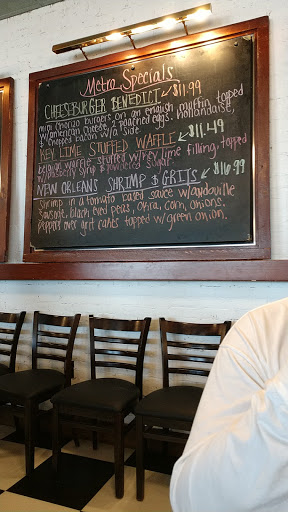 Metro Specials
CHEESEBURGER BENEDICT $11.99
mini chorizo burgers on an english muffin topped
w/american cheese, 2 poached eggs, hollandaise,
& chopped bacon w/a side.
KEY LIME STUFFED WAFFLE $11.49
belgian waffle stuffed w/key lime filling, topped
w/raspberry syrup & powdered sugar.
NEW ORLEANS SHRIMP & GRITS $16.99
Shrimp in a tomato based sauce w/andouille
sausage, black eyed peas, okra, corn, onions,
peppers over grit cakes topped w/green onion.